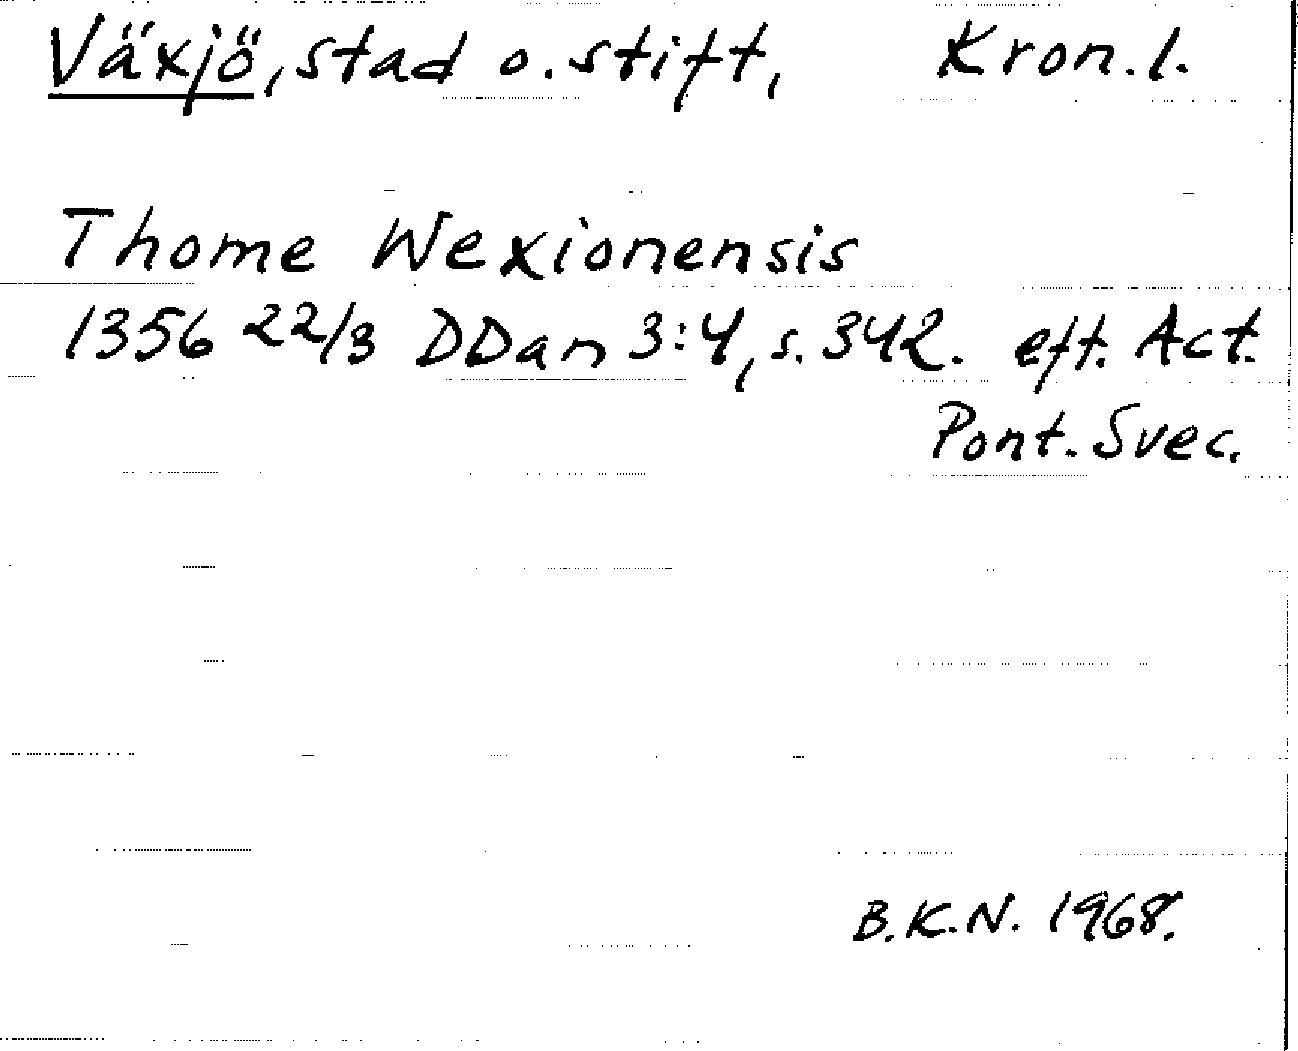 Växjö, stad o. stift, Kron. l.
Thome Wexionensis
1356 22/3 DDan 3:4, s. 342. eft. Act.
Pont. Svec.
B.K.N. 1968.